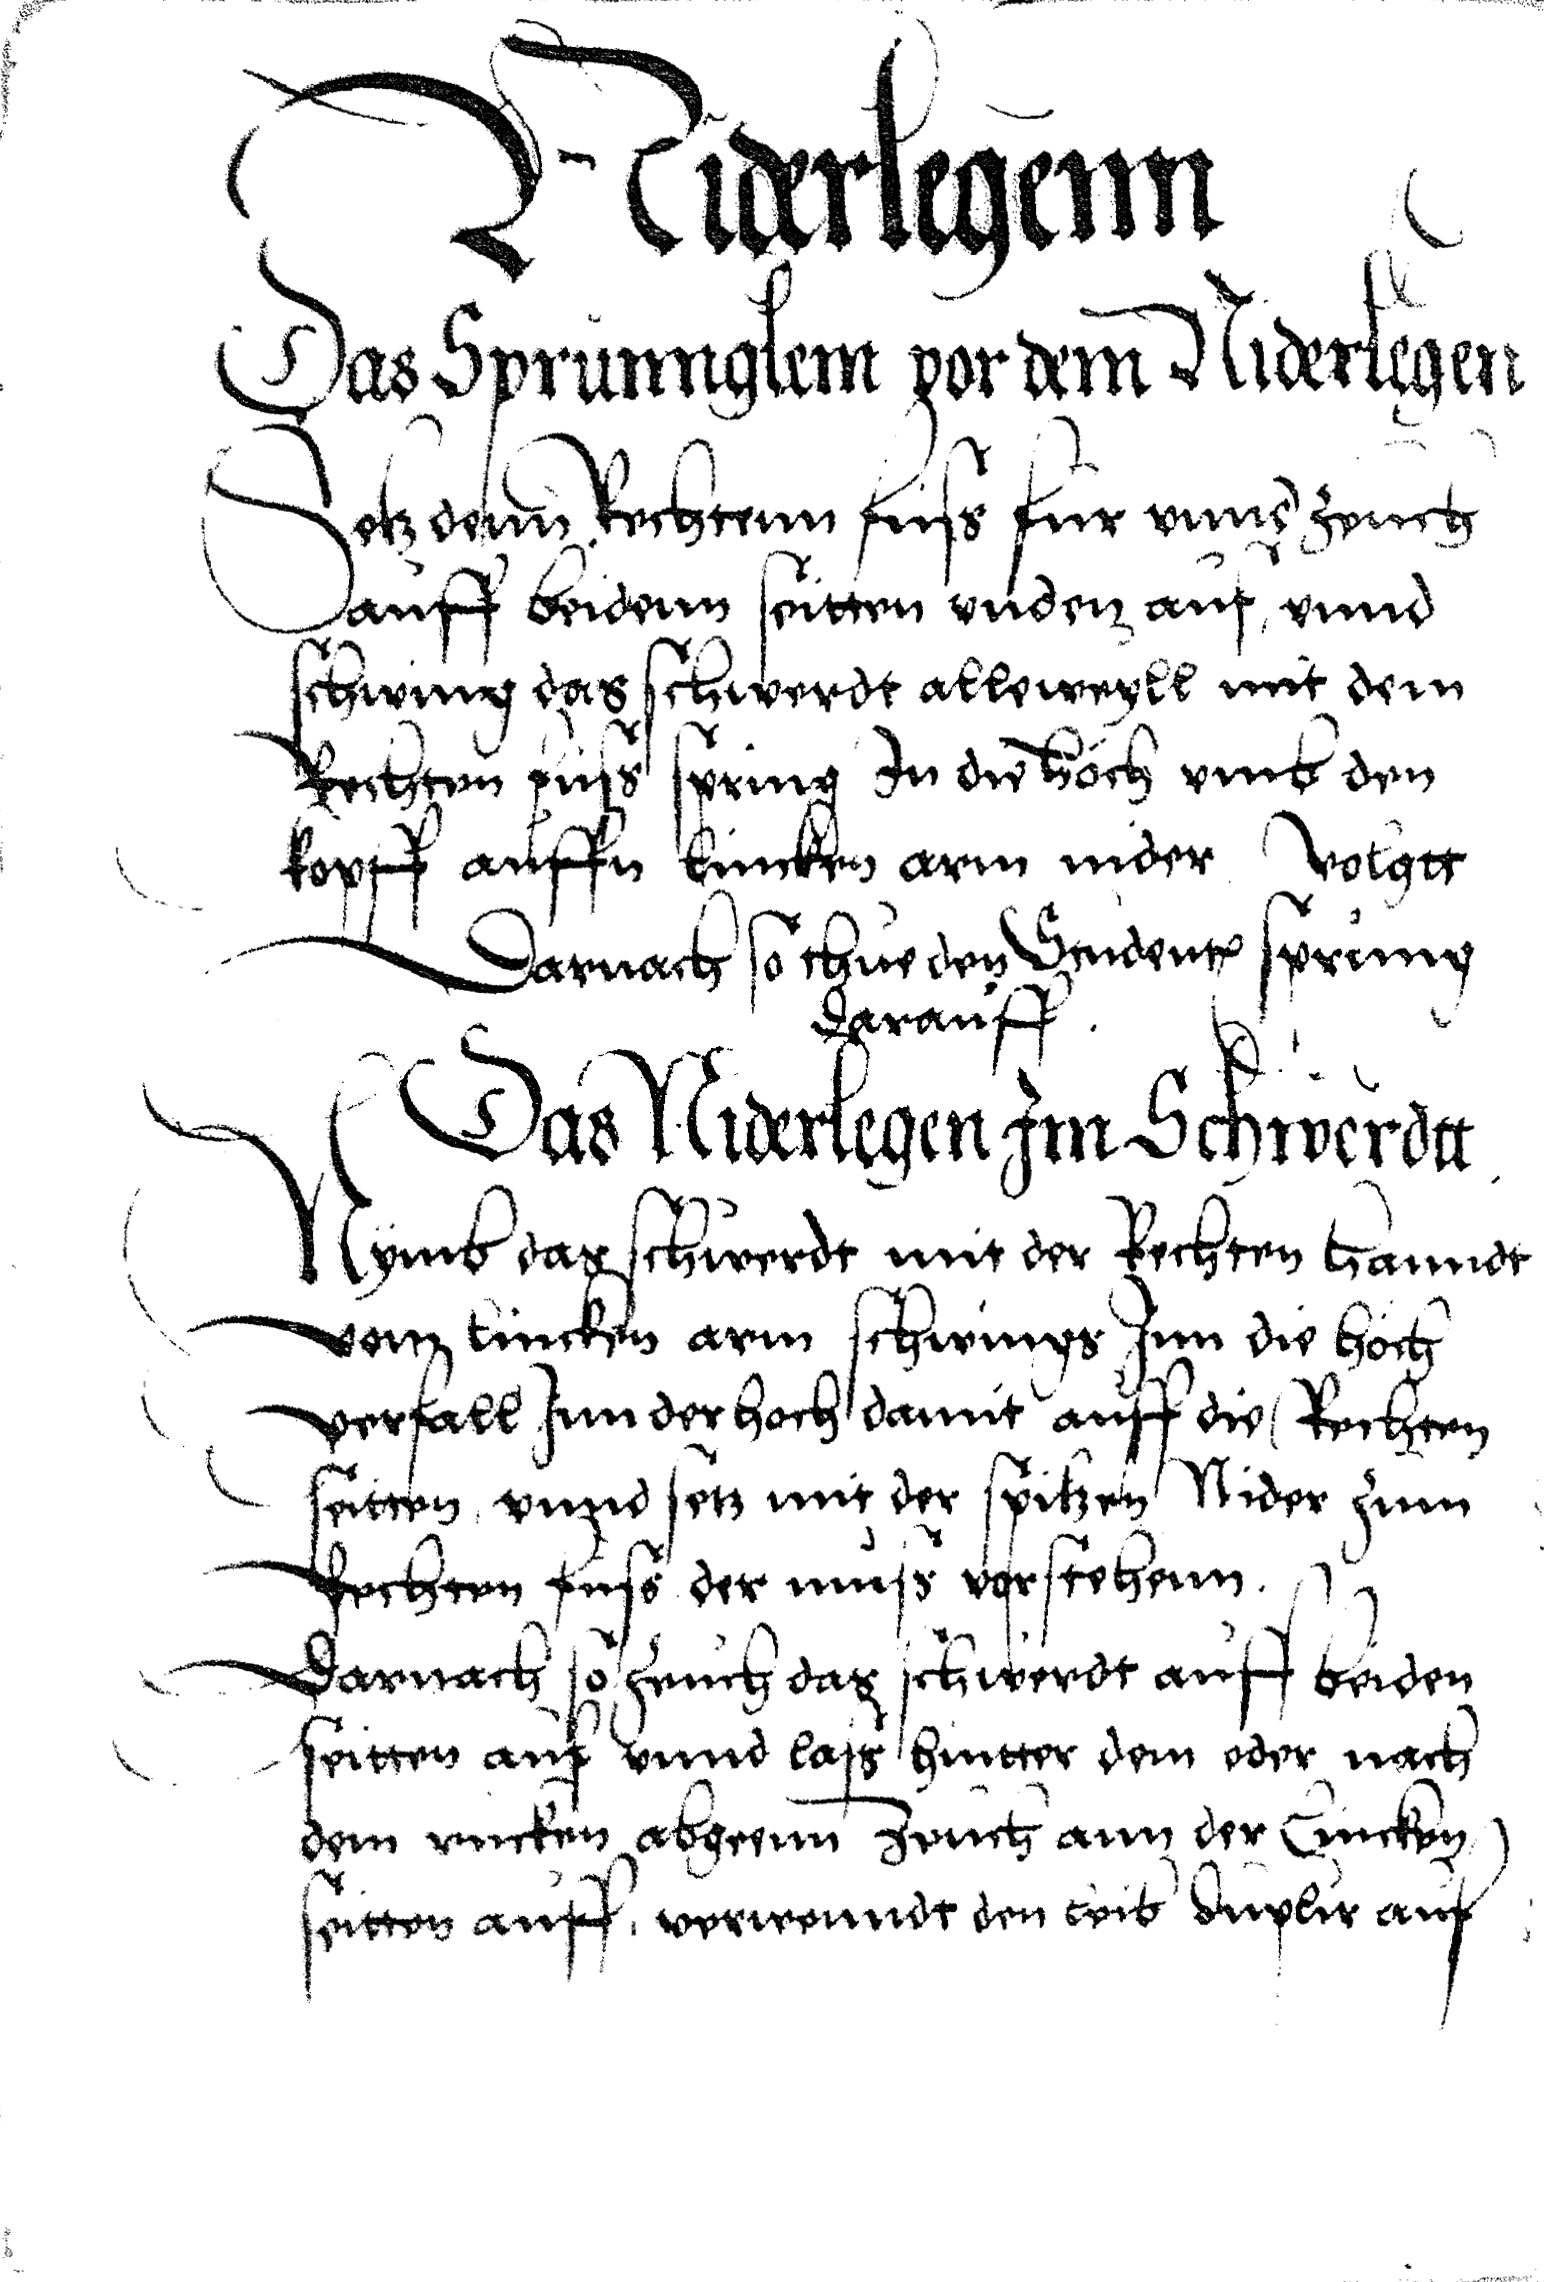 Niderlegenn
Das Sprunnglein vor dem Niderlegen
Setz denn Rechtenn fuß für vnnd zeuch
auff beidenn seitten vnden auf, vnnd
schwing das schwerdt alleweyll mit dem
Rechten fuß spring In die höch vmb den
kopff auffn lincken arm nider Volgtt
Darnach so thue den Studentn sprung
darauff.
Das Niderlegen Im Schwerdtt
Nymb das schwerdt mit der Rechten hanndt
vom lincken arm schwings Inn die höch
verfall Inn der hoch damit auff die Rechten
seitten, vnnd setz mit der spitzen Nider zum
Rechten fuß der muß vorstehenn.
Darnach so zeuch das schwerdt auff beiden
seitten auf vnnd laß hintter dem oder nach
dem rucken abgeenn Zeuch ann der Lincken
seitten auff, verwenndt den leib duplir auf